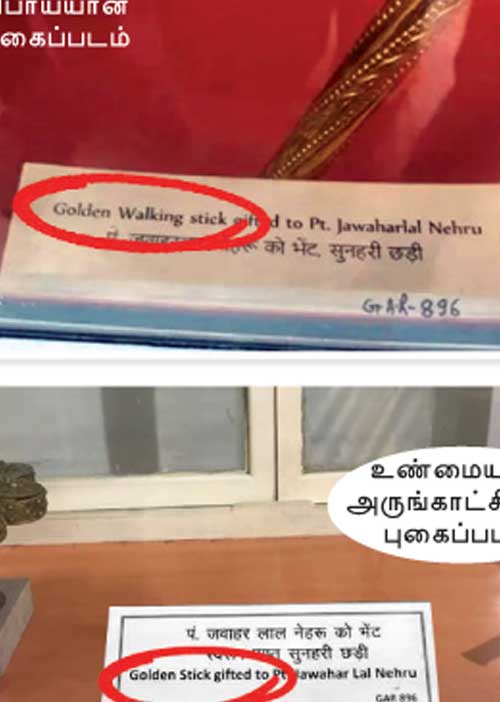 கைப்படம்
Golden Walking stick gifted to Pt. Jawaharlal Nehru
पं. जवाहरलाल नेहरू को भेंट सुनहरी छड़ी
GAR-896
அருங்காட்சி
பं. जवाहर लाल नेहरू को भेंट
सुनहरी छड़ी
Golden Stick gifted to Pt. Jawahar Lal Nehru
GAR 896